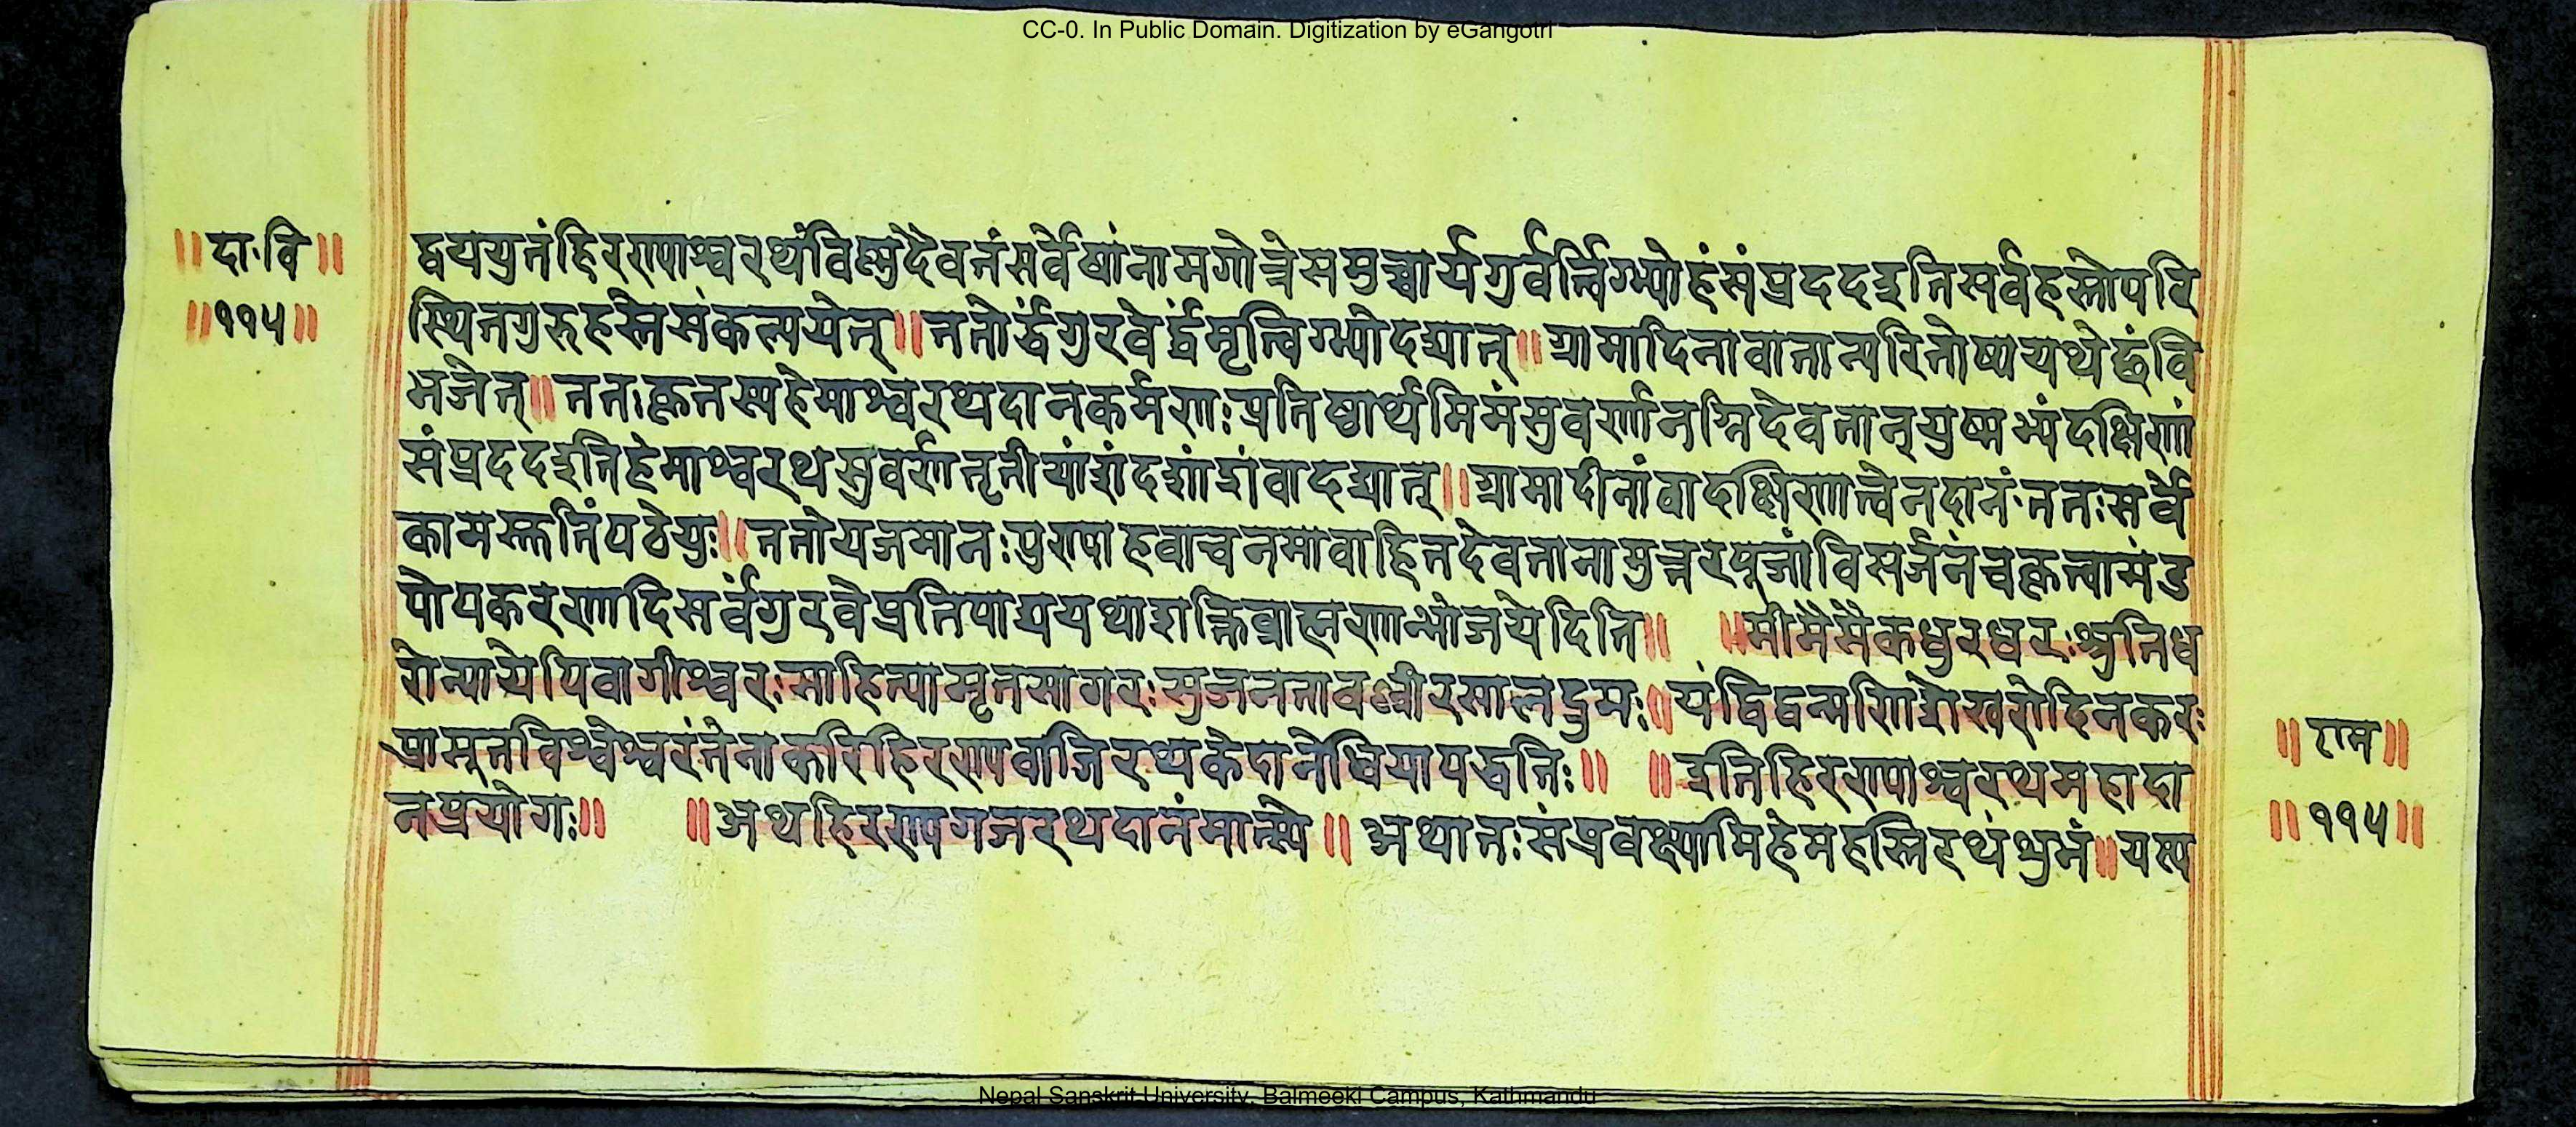 CC-0. In Public Domain. Digitization by eGangotri
॥दा·वि॥
॥११५॥
द्वययुतंहिरण्याश्वरथंविष्णुदैवतंसर्वेषांनामगोत्रेसमुच्चार्यगुर्वर्त्विग्भ्योहंसंप्रददइतिसर्वहस्तोपरि
स्थितगुरुहस्तेसंकल्पयेत्॥ततोर्द्धंगुरवेर्द्धंमृत्विग्भ्योदद्यात्॥ग्रामादिनावातान्परितोष्ययथेष्टंवि
भजेत्॥ततःकृतस्यहेमाश्वरथदानकर्मणःप्रतिष्ठार्थमिमंसुवर्णमग्निदैवतान्युष्मभ्यंदक्षिणां
संप्रददइतिहेमाश्वरथसुवर्णतृतीयांशंदशांशंवादद्यात्॥ग्रामादीनांवादक्षिणात्वेनदानं·ततःसर्वे
कामस्तुतिंपठेयुः॥ततोयजमानःपुण्याहवाचनमावाहितदेवतानामुत्तरपूजांविसर्जनंचकृत्वामंड
पोपकरणादिसर्वंगुरवेप्रतिपाद्ययथाशक्तिब्राह्मणान्भोजयेदिति॥ ॥मीमांसैकधुरंधरःश्रुतिध
रोन्यायेपिवागीश्वरःसाहित्यामृतसागरःसुजनतावल्लीरसालद्रुमः॥यंद्विद्वन्मणिशेखरोदिनकरः
प्रासूतविश्वेश्वरंतेनाकारिहिरण्यवाजिरथकेदानेधियापद्धतिः॥ ॥इतिहिरण्याश्वरथमहादा
नप्रयोगः॥ ॥अथहिरण्यगजरथदानंमात्स्ये॥अथातःसंप्रवक्ष्यामिहेमहस्तिरथंशुभं॥यस्य
॥राम॥
॥११५॥
Nepal Sanskrit University, Balmeeki Campus, Kathmandu